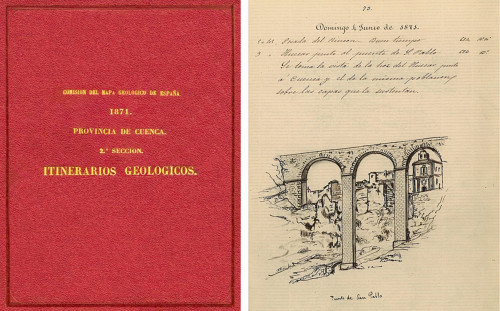 COMISION DEL MAPA GEOLOGICO DE ESPAÑA.
1871.
PROVINCIA DE CUENCA.
2.ª SECCION.
ITINERARIOS GEOLOGICOS.
Domingo 4 Junio de 1871.
Posada del Rincon. Buen tiempo
Huecar junto al puente de S. Pablo.
Se toma la vista de la hoz del Huecar junto
a Cuenca y el de la misma poblacion
sobre las capas que la sustentan.
Puente de San Pablo